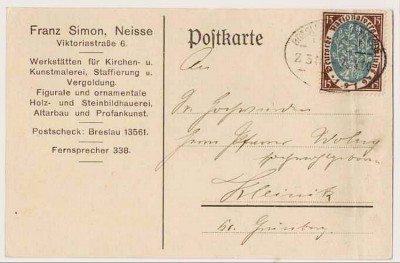 Franz Simon, Neisse
Viktoriastraße 6.
Werkstätten für Kirchen- u.
Kunstmalerei, Staffierung u.
Vergoldung.
Figurale und ornamentale
Holz- und Steinbildhauerei.
Altarbau und Profankunst.
Postscheck: Breslau 13561.
Fernsprecher 338.
Postkarte
15 15
Deutsche Nationalversammlung
1919
15 15
An
Sr Hochwürden
Herrn Pfarrer
Hochwohlgeboren
Kleinitz
Kr. Grünberg